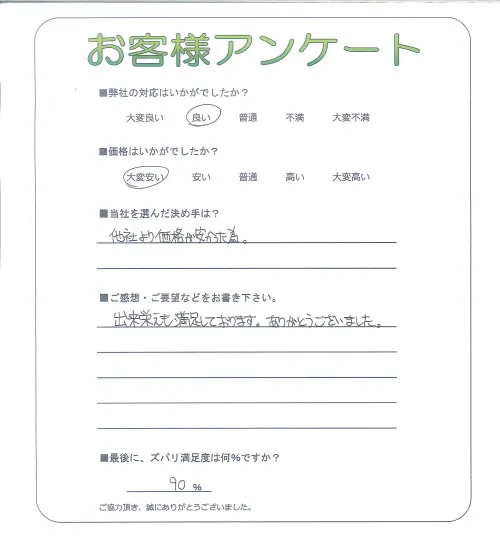 お客様アンケート
■弊社の対応はいかがでしたか？
大変良い 良い 普通 不満 大変不満
■価格はいかがでしたか？
大変安い 安い 普通 高い 大変高い
■当社を選んだ決め手は？
他社より価格が安かった為。
■ご感想・ご要望などをお書き下さい。
出来栄えも満足しております。ありがとうございました。
■最後に、ズバリ満足度は何％ですか？
90 %
ご協力頂き、誠にありがとうございました。